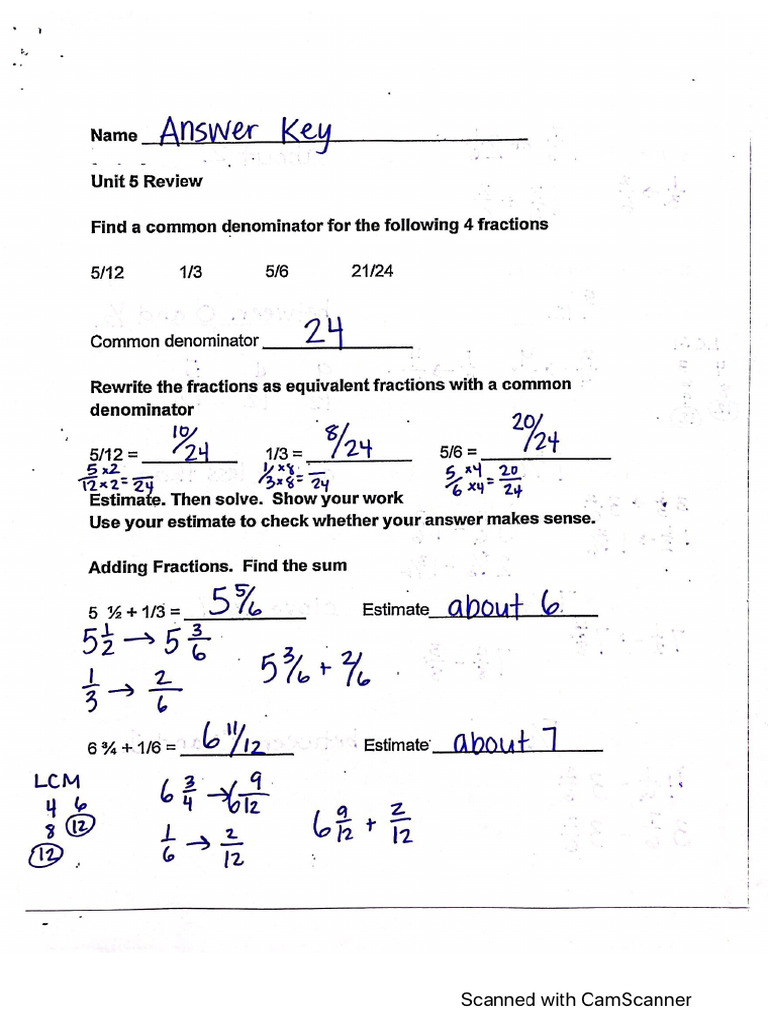 Name Answer Key
Unit 5 Review
Find a common denominator for the following 4 fractions
5/12 1/3 5/6 21/24
Common denominator 24
Rewrite the fractions as equivalent fractions with a common
denominator
5/12 = 10/24 1/3 = 8/24 5/6 = 20/24
5/12 ×2/×2 = /24 1/3 ×8/×8 = /24 5/6 ×4/×4 = 20/24
Estimate. Then solve. Show your work
Use your estimate to check whether your answer makes sense.
Adding Fractions. Find the sum
5 ½ + 1/3 = 5 5/6 Estimate about 6
5 1/2 → 5 3/6
1/3 → 2/6
5 3/6 + 2/6
6 ¾ + 1/6 = 6 11/12 Estimate about 7
LCM
4 6
8 12
12
6 3/4 → 6 9/12
1/6 → 2/12
6 9/12 + 2/12
Scanned with CamScanner